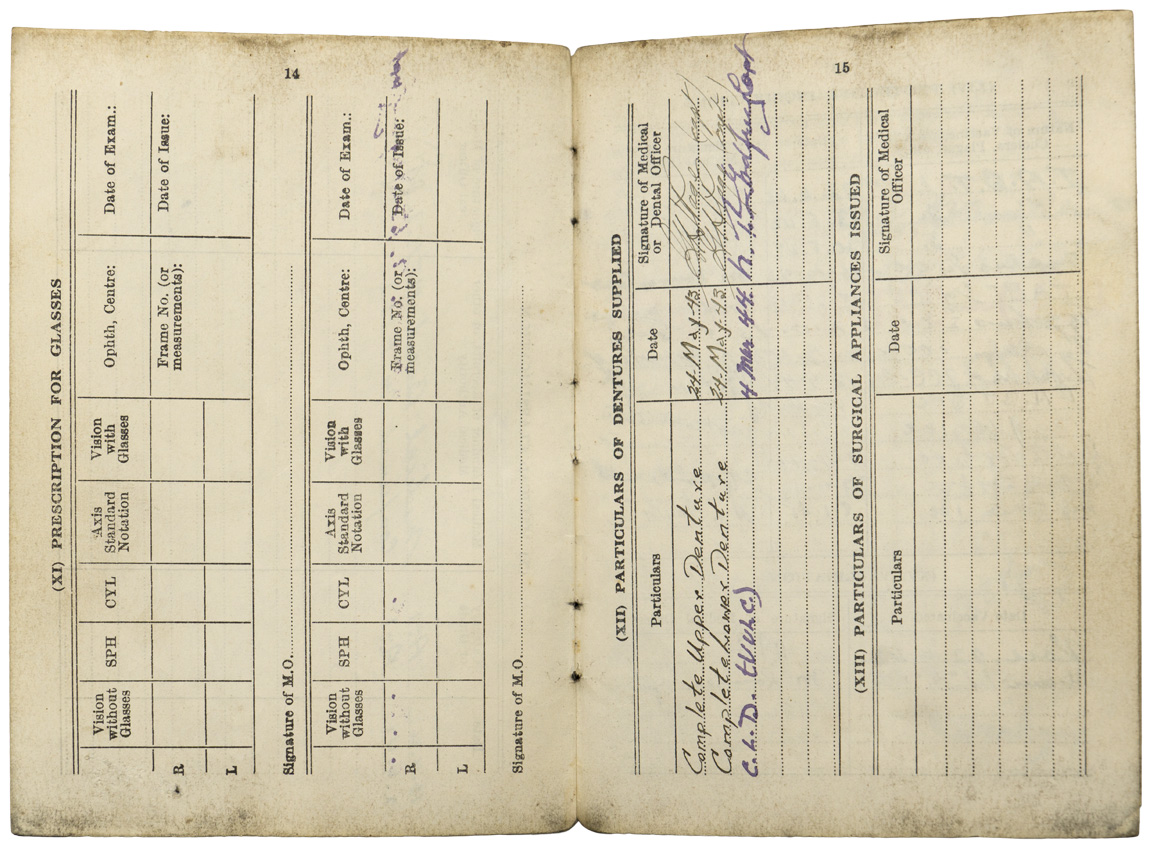 14
(XI) PRESCRIPTION FOR GLASSES
Vision without Glasses SPH CYL Axis Standard Notation Vision with Glasses Ophth, Centre: Date of Exam.:
R Frame No. (or measurements): Date of Issue:
L
Signature of M.O.
Vision without Glasses SPH CYL Axis Standard Notation Vision with Glasses Ophth, Centre: Date of Exam.:
R Frame No. (or measurements): Date of Issue:
L
Signature of M.O.
15
(XII) PARTICULARS OF DENTURES SUPPLIED
Particulars Date Signature of Medical or Dental Officer
Complete Upper Denture 24 May 43 Capt
Complete Lower Denture 24 May 43 Capt
4 Mar 44 Capt
(XIII) PARTICULARS OF SURGICAL APPLIANCES ISSUED
Particulars Date Signature of Medical Officer